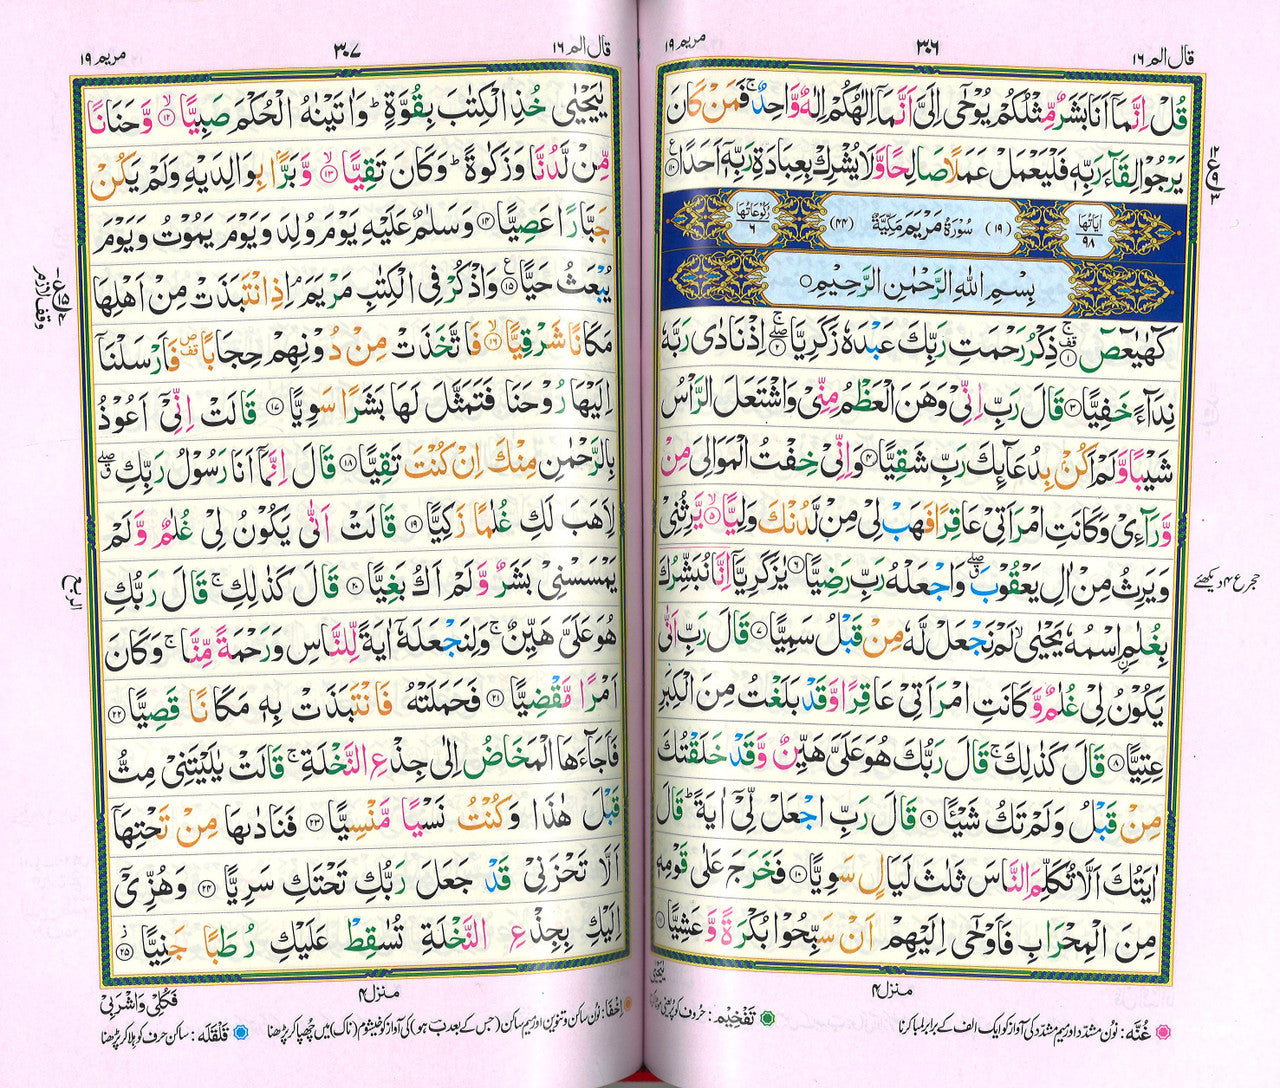 قال الم ١٦
٣٠٦
مريم ١٩
قُلۡ اِنَّمَاۤ اَنَا بَشَرٌ مِّثۡلُكُمۡ يُوۡحٰٓى اِلَىَّ اَنَّمَاۤ اِلٰهُكُمۡ اِلٰهٌ وَّاحِدٌ ۚ فَمَنۡ كَانَ
يَرۡجُوۡا لِقَآءَ رَبِّهٖ فَلۡيَعۡمَلۡ عَمَلًا صَالِحًـا وَّلَا يُشۡرِكۡ بِعِبَادَةِ رَبِّهٖۤ اَحَدًا ۧ ﴿۱۱۰﴾
اٰيَاتُهَا ٩٨ (١٩) سُوۡرَةُ مَرۡيَمَ مَكِّيَّةٌ (٤٤) رُكُوۡعَاتُهَا ٦
بِسۡمِ اللّٰهِ الرَّحۡمٰنِ الرَّحِيۡمِ
كٓهٰيٰعٓصٓ ۚ ﴿۱﴾ ذِكۡرُ رَحۡمَتِ رَبِّكَ عَـبۡدَهٗ زَكَرِيَّا ۖۚ ﴿۲﴾ اِذۡ نَادٰى رَبَّهٗ
نِدَآءً خَفِيًّا ﴿۳﴾ قَالَ رَبِّ اِنِّىۡ وَهَنَ الۡعَظۡمُ مِنِّىۡ وَاشۡتَعَلَ الرَّاۡسُ
شَيۡبًا وَّلَمۡ اَكُنۡۢ بِدُعَآٮِٕكَ رَبِّ شَقِيًّا ﴿۴﴾ وَاِنِّىۡ خِفۡتُ الۡمَوَالِىَ مِنۡ
وَّرَآءِىۡ وَكَانَتِ امۡرَاَتِىۡ عَاقِرًا فَهَبۡ لِىۡ مِنۡ لَّدُنۡكَ وَلِيًّا ۙ ﴿۵﴾ يَّرِثُنِىۡ
وَيَرِثُ مِنۡ اٰلِ يَعۡقُوۡبَ ۖ وَاجۡعَلۡهُ رَبِّ رَضِيًّا ﴿۶﴾ يٰزَكَرِيَّاۤ اِنَّا نُبَشِّرُكَ
بِغُلٰمِ اۨسۡمُهٗ يَحۡيٰى ۙ لَمۡ نَجۡعَلْ لَّهٗ مِنۡ قَبۡلُ سَمِيًّا ﴿۷﴾ قَالَ رَبِّ اَنّٰى
يَكُوۡنُ لِىۡ غُلٰمٌ وَّكَانَتِ امۡرَاَتِىۡ عَاقِرًا وَّقَدۡ بَلَـغۡتُ مِنَ الۡـكِبَرِ
عِتِيًّا ﴿۸﴾ قَالَ كَذٰلِكَ ۚ قَالَ رَبُّكَ هُوَ عَلَىَّ هَيِّنٌ وَّقَدۡ خَلَقۡتُكَ
مِنۡ قَبۡلُ وَلَمۡ تَكُ شَيۡـًٔـا ﴿۹﴾ قَالَ رَبِّ اجۡعَلْ لِّىۡۤ اٰيَةً ؕ قَالَ
اٰيَتُكَ اَلَّا تُكَلِّمَ النَّاسَ ثَلٰثَ لَيَالٍ سَوِيًّا ﴿۱۰﴾ فَخَرَجَ عَلٰى قَوۡمِهٖ
مِنَ الۡمِحۡرَابِ فَاَوۡحٰٓى اِلَيۡهِمۡ اَنۡ سَبِّحُوۡا بُكۡرَةً وَّعَشِيًّا ﴿۱۱﴾
يٰيَحۡيٰى
منزل ٤
غُنّه : نُون مشدّد اور میم مشدّد کی آواز کو ایک الف کے برابر لمبا کرنا
تَفْخِيْم : حُروف کو پُر یعنی موٹا
قال الم ١٦
٣٠٧
مريم ١٩
يٰيَحۡيٰى خُذِ الۡكِتٰبَ بِقُوَّةٍ ؕ وَاٰتَيۡنٰهُ الۡحُكۡمَ صَبِيًّا ۙ ﴿۱۲﴾ وَّحَنَانًـا
مِّنۡ لَّدُنَّا وَزَكٰوةً ؕ وَكَانَ تَقِيًّا ۙ ﴿۱۳﴾ وَّبَرًّۢا بِوَالِدَيۡهِ وَلَمۡ يَكُنۡ
جَبَّارًا عَصِيًّا ﴿۱۴﴾ وَسَلٰمٌ عَلَيۡهِ يَوۡمَ وُلِدَ وَيَوۡمَ يَمُوۡتُ وَيَوۡمَ
يُبۡعَثُ حَيًّا ۧ ﴿۱۵﴾ وَاذۡكُرۡ فِى الۡكِتٰبِ مَرۡيَمَ ۘ اِذِ انْتَبَذَتۡ مِنۡ اَهۡلِهَا
مَكَانًا شَرۡقِيًّا ۙ ﴿۱۶﴾ فَاتَّخَذَتۡ مِنۡ دُوۡنِهِمۡ حِجَابًا ࣞ فَاَرۡسَلۡنَاۤ
اِلَيۡهَا رُوۡحَنَا فَتَمَثَّلَ لَهَا بَشَرًا سَوِيًّا ﴿۱۷﴾ قَالَتۡ اِنِّىۡۤ اَعُوۡذُ
بِالرَّحۡمٰنِ مِنۡكَ اِنۡ كُنۡتَ تَقِيًّا ﴿۱۸﴾ قَالَ اِنَّمَاۤ اَنَا رَسُوۡلُ رَبِّكِ ۖ
لِاَهَبَ لَـكِ غُلٰمًا زَكِيًّا ﴿۱۹﴾ قَالَتۡ اَنّٰى يَكُوۡنُ لِىۡ غُلٰمٌ وَّلَمۡ
يَمۡسَسۡنِىۡ بَشَرٌ وَّلَمۡ اَكُ بَغِيًّا ﴿۲۰﴾ قَالَ كَذٰلِكِ ۚ قَالَ رَبُّكِ
هُوَ عَلَىَّ هَيِّنٌ ۚ وَلِنَجۡعَلَهٗۤ اٰيَةً لِّلنَّاسِ وَرَحۡمَةً مِّنَّا ۚ وَكَانَ
اَمۡرًا مَّقۡضِيًّا ﴿۲۱﴾ فَحَمَلَـتۡهُ فَانْتَبَذَتۡ بِهٖ مَكَانًا قَصِيًّا ﴿۲۲﴾
فَاَجَآءَهَا الۡمَخَاضُ اِلٰى جِذۡعِ النَّخۡلَةِ ۚ قَالَتۡ يٰلَيۡتَنِىۡ مِتُّ
قَبۡلَ هٰذَا وَكُنۡتُ نَسۡيًا مَّنۡسِيًّا ﴿۲۳﴾ فَنَادٰٮهَا مِنۡ تَحۡتِهَاۤ
اَلَّا تَحۡزَنِىۡ قَدۡ جَعَلَ رَبُّكِ تَحۡتَكِ سَرِيًّا ﴿۲۴﴾ وَهُزِّىۡۤ
اِلَيۡكِ بِجِذۡعِ النَّخۡلَةِ تُسٰقِطۡ عَلَيۡكِ رُطَبًا جَنِيًّا ﴿۲۵﴾
منزل ٤
فَكُلِىۡ وَاشۡرَبِىۡ
إخفا : نُون ساکن و تنوین اور میم ساکن (جس کے بعد ب ہو) کی آواز کو خیشوم (ناک) میں چُھپا کر پڑھنا
قَلْقَلَه : ساکن حرف کو ہلا کر پڑھنا
وقف لازم
الربع
حجر ع ٤ دیکھئے